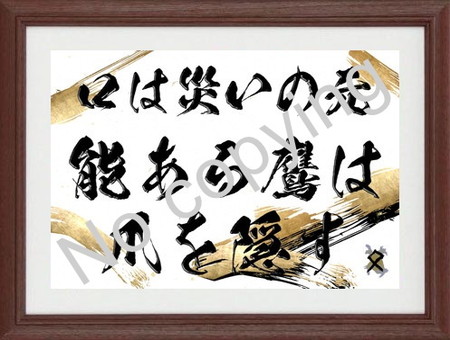 口は災いの元
能ある鷹は
爪を隠す
No copying